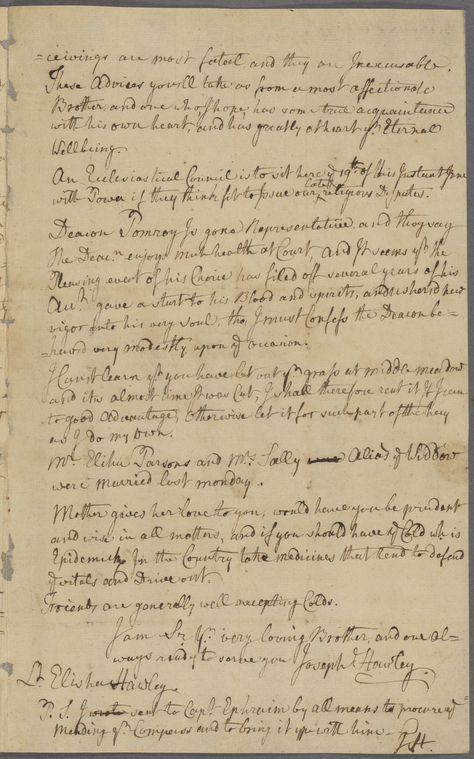 =ceivings are most fatal and they are Inexcusable.
These Advices you'll take as from a most affectionate
Brother, and one who I hope has some true acquaintance
with his own heart, and has greatly at heart yr Eternal
Wellbeing.
An Ecclesiastical Council is to sit here ye 19th of this Instant June
with Power if they think fit to Issue our religious Disputes.
Deacon Pomroy Is gone Representative, and they say
The Deacn enjoys much health at Court, And It seems yt the
Pleasing event of his Choice has filed off several years of his
Age, gave a start to his Blood and spirits, and usher'd new
vigor into his very soul, tho' I must Confess the Deacon be-
=haved very modestly upon ye occasion.
I Can't learn yt you have let out yr grass at middle meadow
and it is almost time it was Cut, I shall therefore rent it If I can
to good Advantage, Otherwise let it for such part of the hay
as I do my own.
Mr Elihu Parsons and Mrs Sally Alias ye Widdow
were married last monday.
Mother gives her love to you, would have you be prudent
and wise in all matters, and if you should have ye Cold wh is
Epidemick In the Country take medicines that tend to defend
ye vitals and Drive out.
Friends are generally well excepting Colds.
I am Sr yr very loving Brother, and one al-
ways ready to serve you Joseph Hawley.
Lt Elisha Hawley
P. S. I sent to Capt Ephraim by all means to procure ye
mending yr Compass and to bring it up with him—
J H.